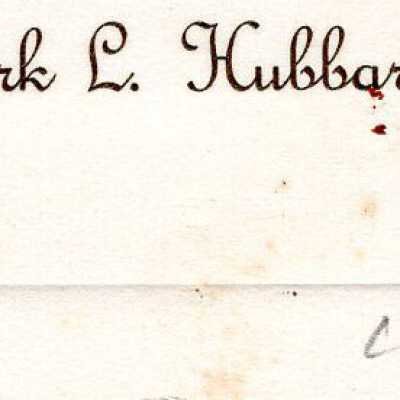 rk L. Hubbar